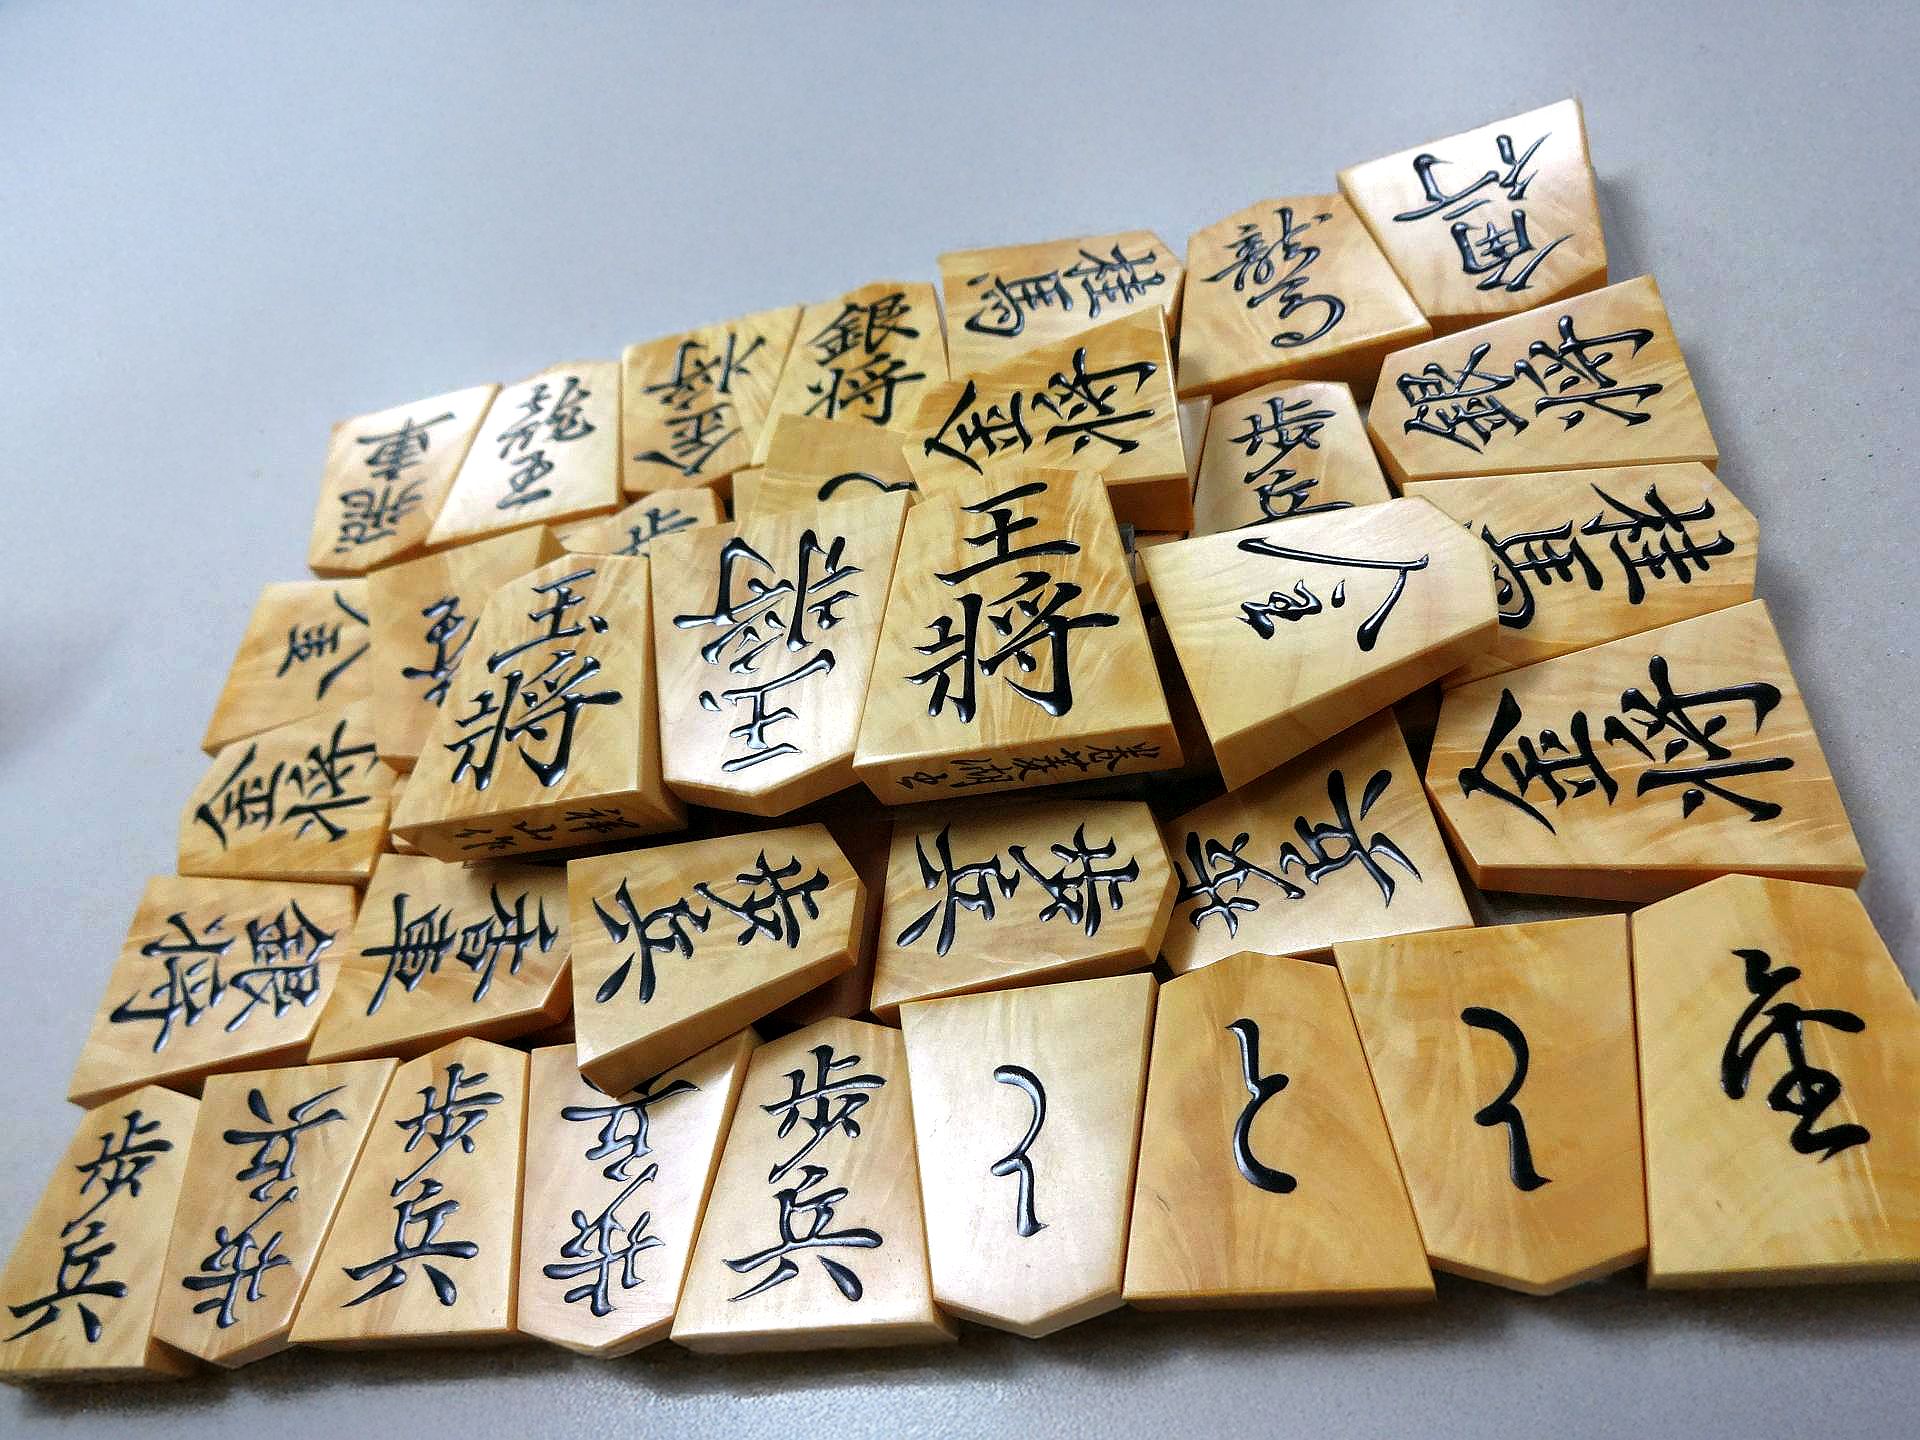 角行
龍馬
桂馬
銀将
金将
龍王
飛車
銀将
金将
歩
と
桂馬
王将
玉将
玉将
金将
金将
歩兵
歩兵
歩兵
香車
銀将
歩兵
歩兵
歩兵
歩兵
歩兵
と
と
と
巻菱湖書
祥山作